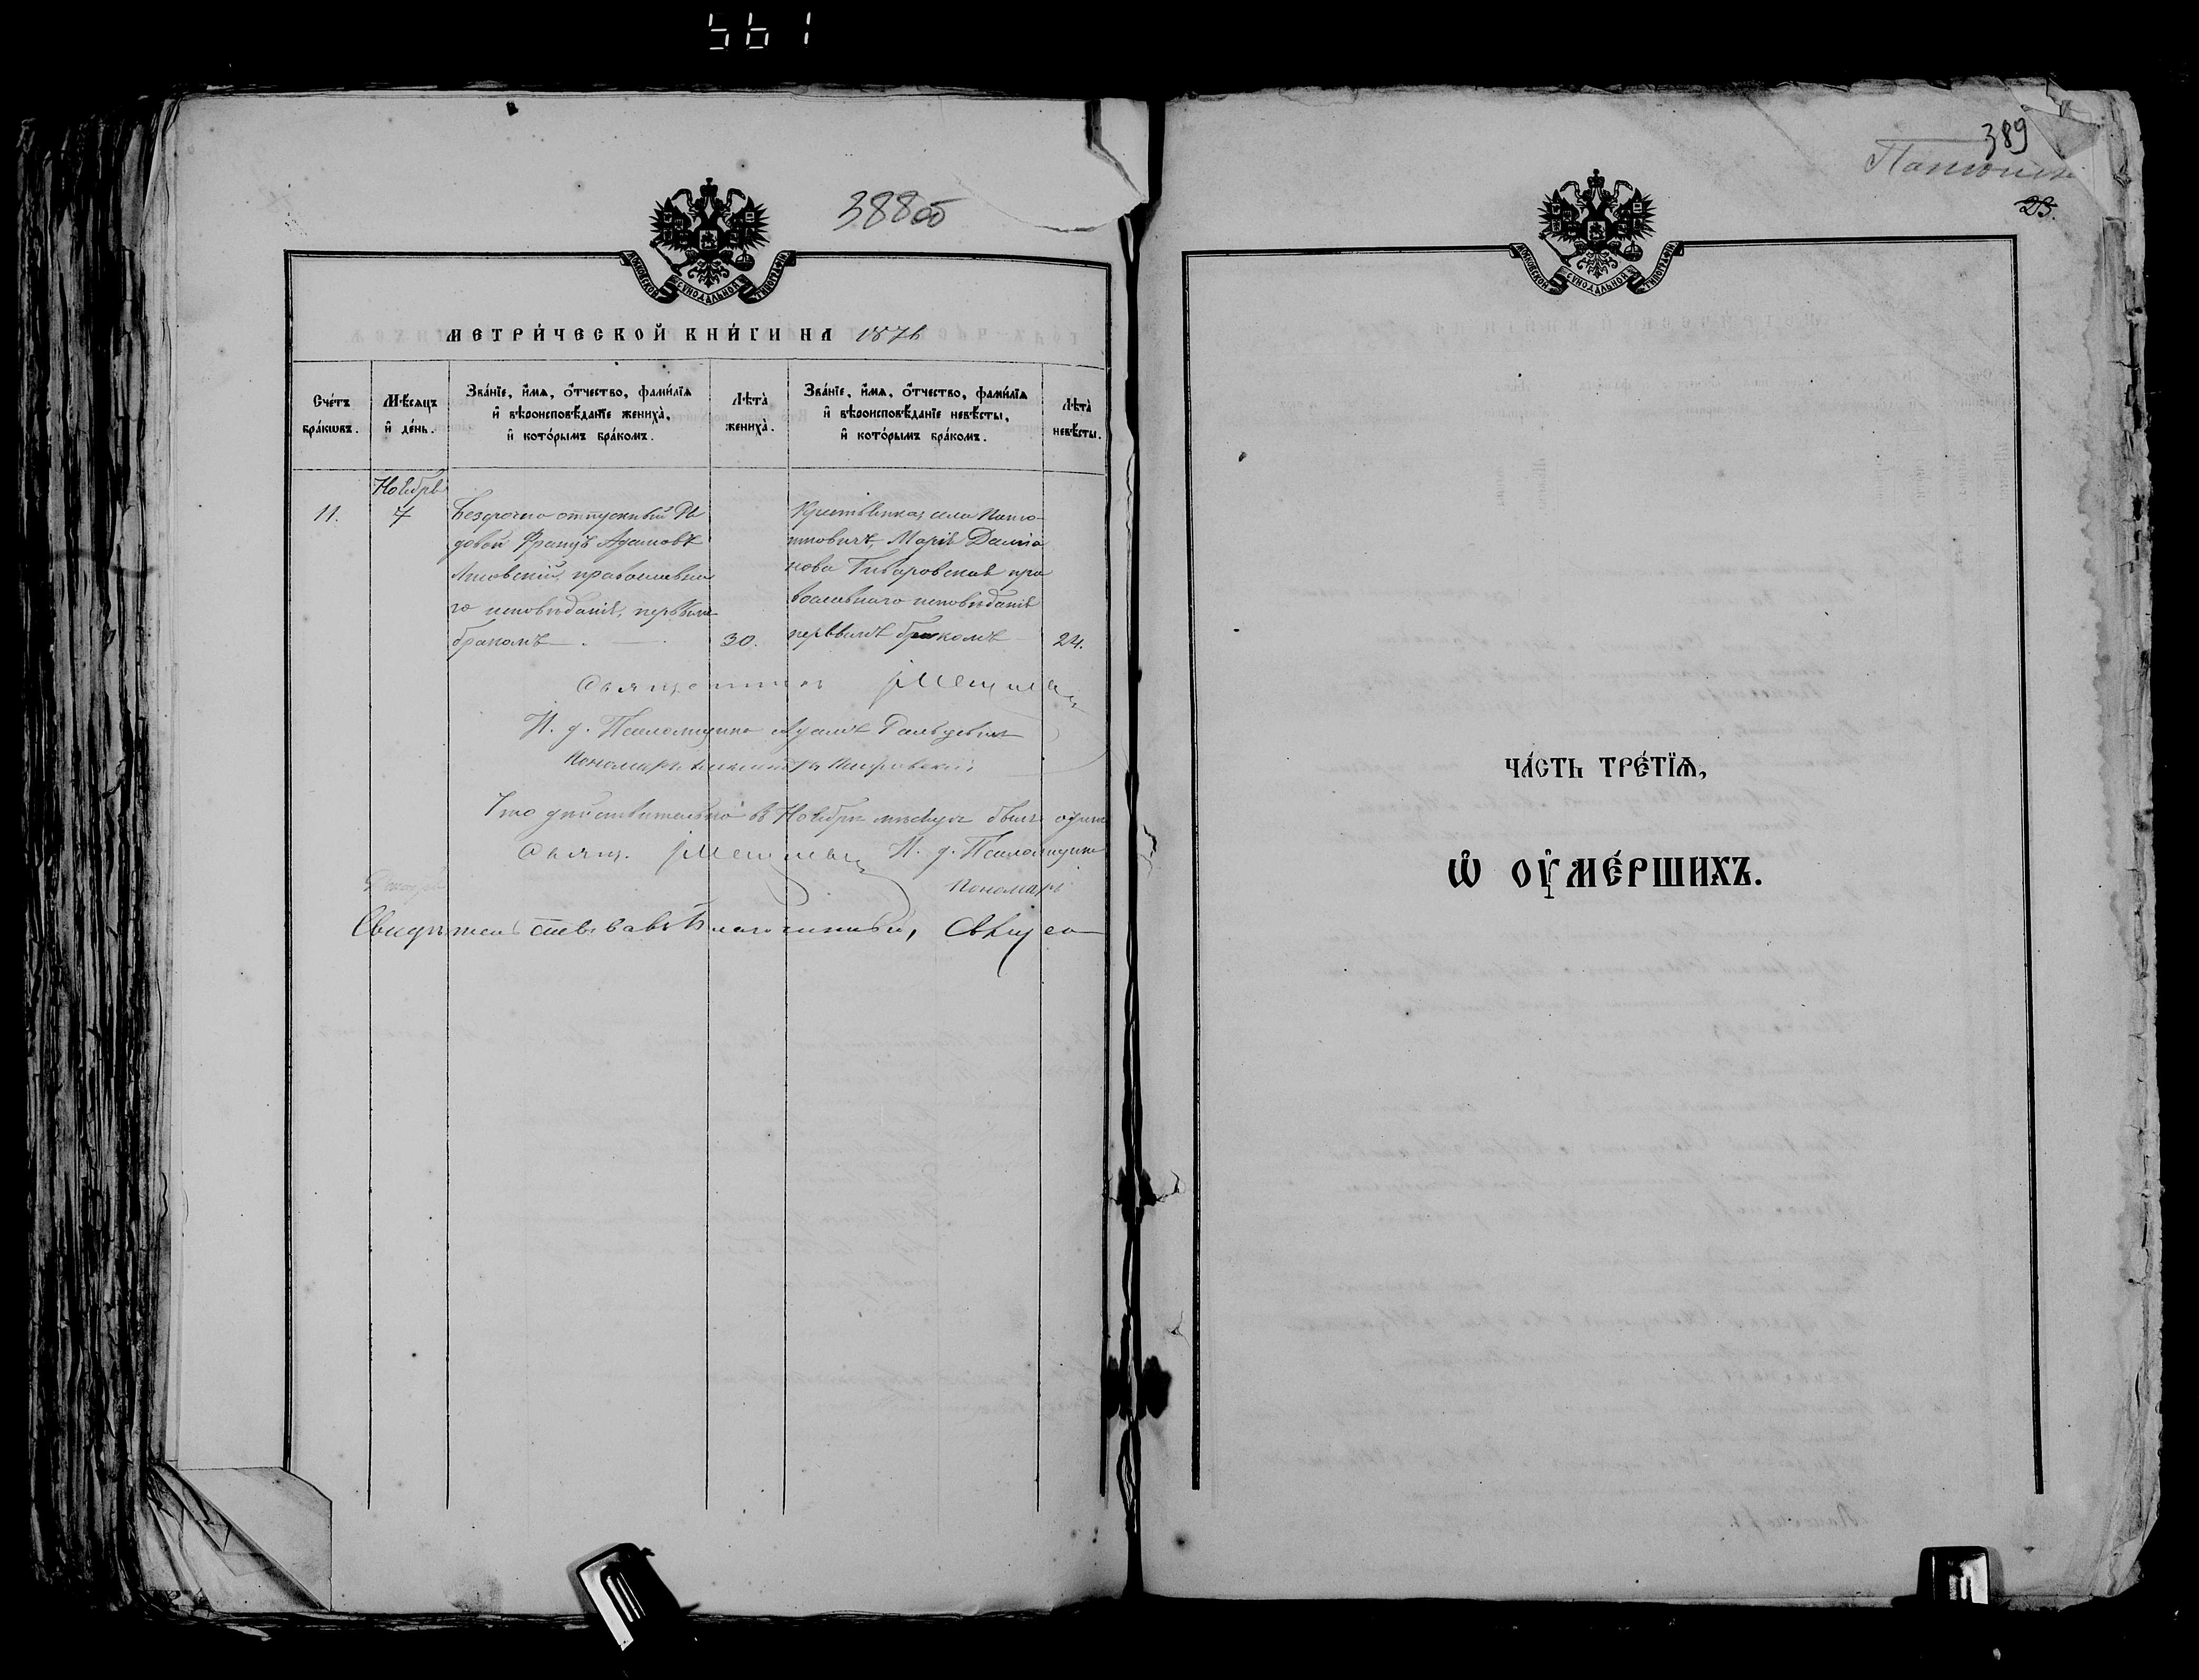 561
388об
МОСКОВСКОЙ СУНОДАЛЬНОЙ ТИПОГРАФІИ
МЕТРИ́ЧЕСКОЙ КНИ́ГИ НА 1876
Сче́тъ бра́кѡвъ.
Мѣ́сяцъ и҆ де́нь.
Зва́нїе, и҆́мѧ, ѻ҆́тчество, фами́лїѧ и҆ вѣроисповѣ́данїе жениха̀, и҆ кото́рымъ бра́комъ.
Лѣта̀ жениха̀.
Зва́нїе, и҆́мѧ, ѻ҆́тчество, фами́лїѧ и҆ вѣроисповѣ́данїе невѣ́сты, и҆ кото́рымъ бра́комъ.
Лѣта̀ невѣ́сты.
Ноября
11.
7
Безсрочно отпускный Ря
довой Францъ Адамовъ
православна
го исповѣданія, первымъ
бракомъ
30.
Крестьянка, села Папю
Марія Дамiа
нова про
вославнаго исповѣданія
первымъ бракомъ
24.
Священникъ
И. д. Псаломщика Адамъ
Пономарь
Что дѣйствительно въ Ноябрѣ мѣсяцѣ былъ одинъ
Свящ. И. д. Псаломщика
Пономарь
Свидѣтельствовавъ Благочинный, Священ
389
23.
МОСКОВСКОЙ СУНОДАЛЬНОЙ ТИПОГРАФІИ
ЧА́СТЬ ТРЕ́ТЇѦ,
Ѡ҆ ОУ҆МЕ́РШИХЪ.